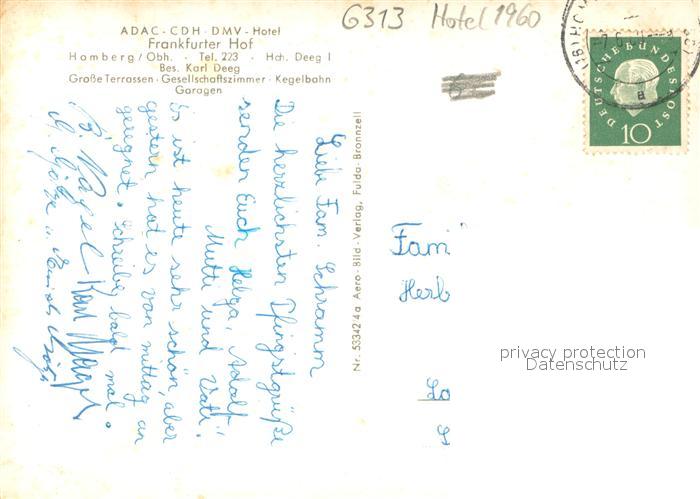 ADAC - CDH - DMV - Hotel
Frankfurter Hof
Homberg / Obh. · Tel. 223 · Hch. Deeg I
Bes. Karl Deeg
Große Terrassen · Gesellschaftszimmer · Kegelbahn
Garagen
G313 Hotel 1960
DEUTSCHE BUNDESPOST
10
a
Nr. 53342 4a Aero-Bild-Verlag, Fulda-Bronnzell
Liebe Fam. Schramm
Die herzlichsten Pfingstgrüße
senden Euch Helga, Adolf
Mutti und Vati.
Es ist heute sehr schön, aber
gestern hat es von mittag an
geregnet. Schreibe bald mal.
B. Nagel Karl
Fam
Herb
privacy protection
Datenschutz